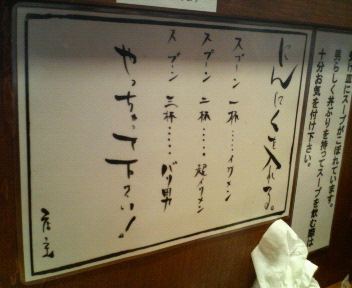 にんにくを入れる。
スプーン 一杯……イケメン
スプーン 二杯……超イケメン
スプーン 三杯……バリ男
やっちゃって下さい!
店主
皿にスープがこぼれています。
男らしく丼ぶりを持ってスープを飲む際は
十分お気を付け下さい。